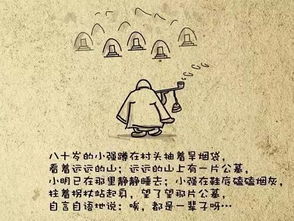 八十岁的小强蹲在村头抽着旱烟袋,
看着远远的山;远远的山上有一片公墓,
小明已在那里静静睡去;小强在鞋底磕磕烟灰,
拄着拐杖站起身,望了望那片公墓,
自言自语地说:唉,都是一辈子呀…